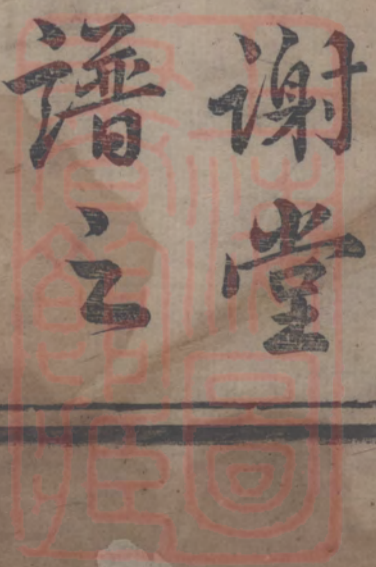 謝堂
譜之